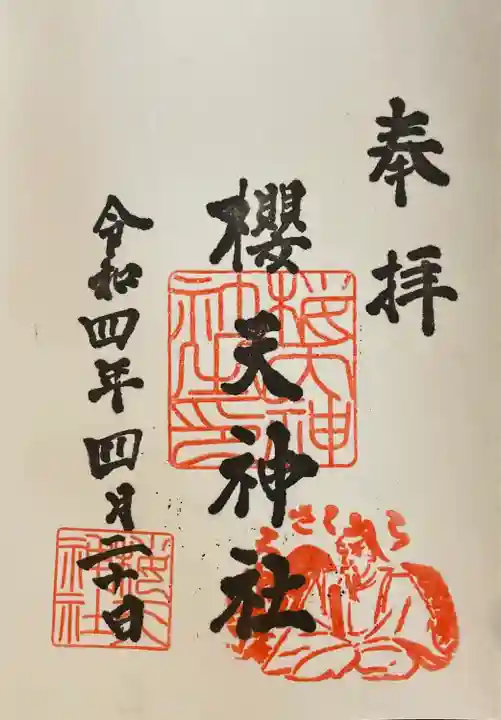 奉拝
櫻天神社
令和四年四月二十日
桜天神社印
さくら